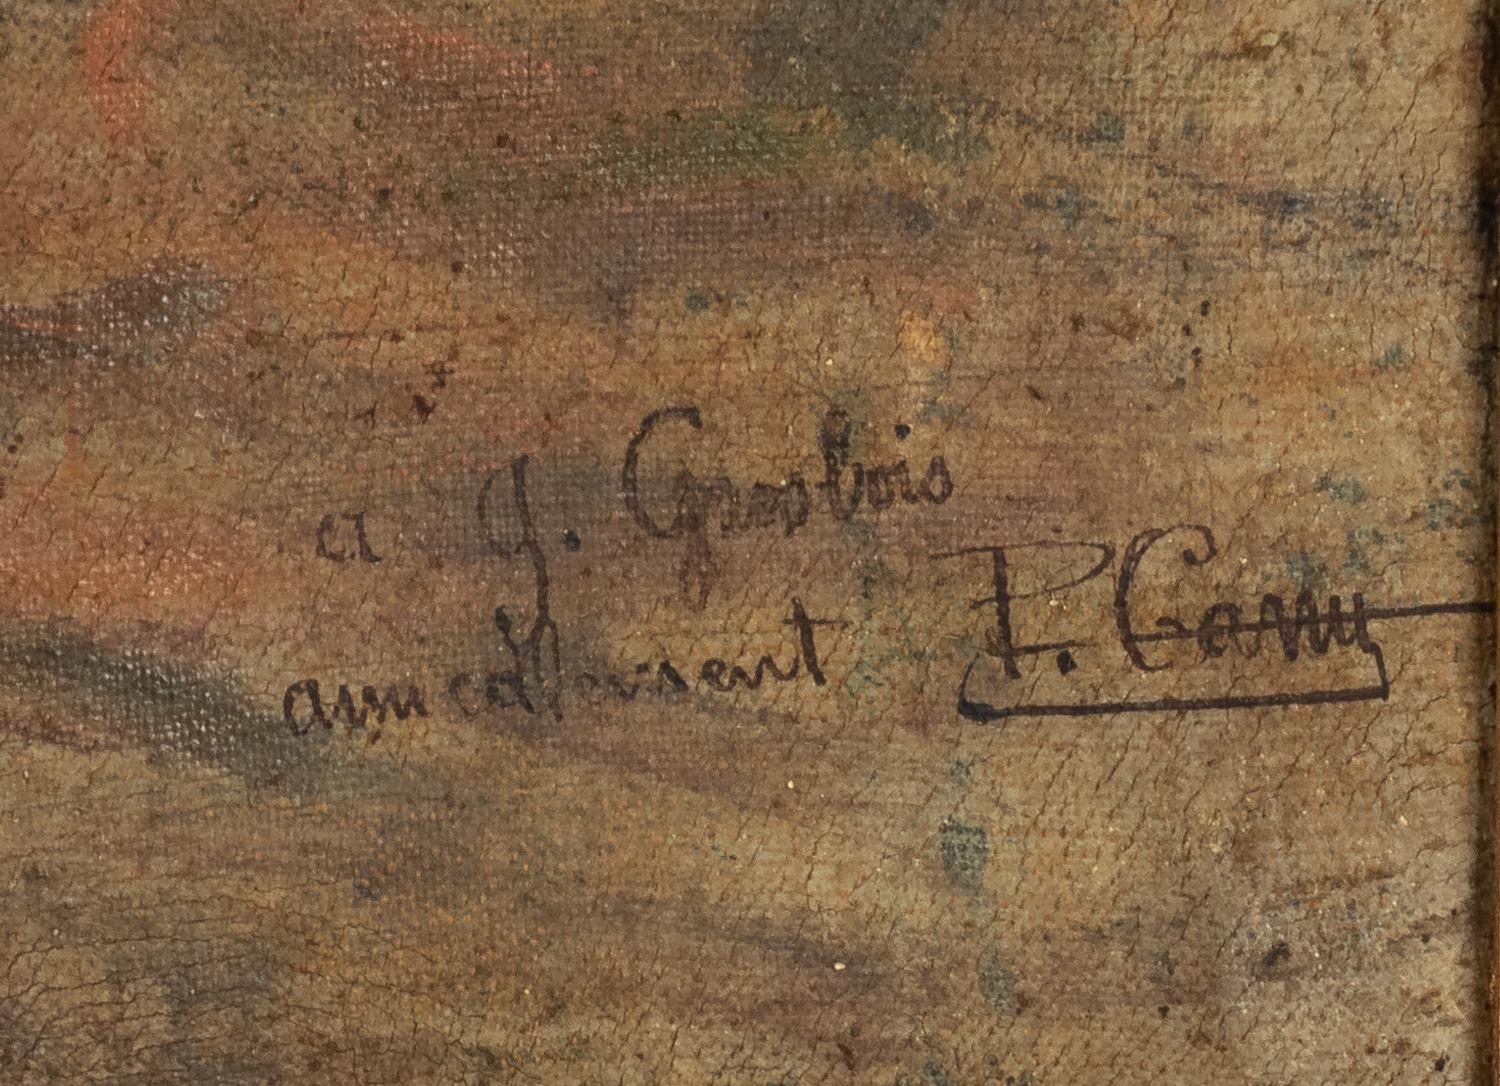 a J. Grosbois
amicalement P. Gamy